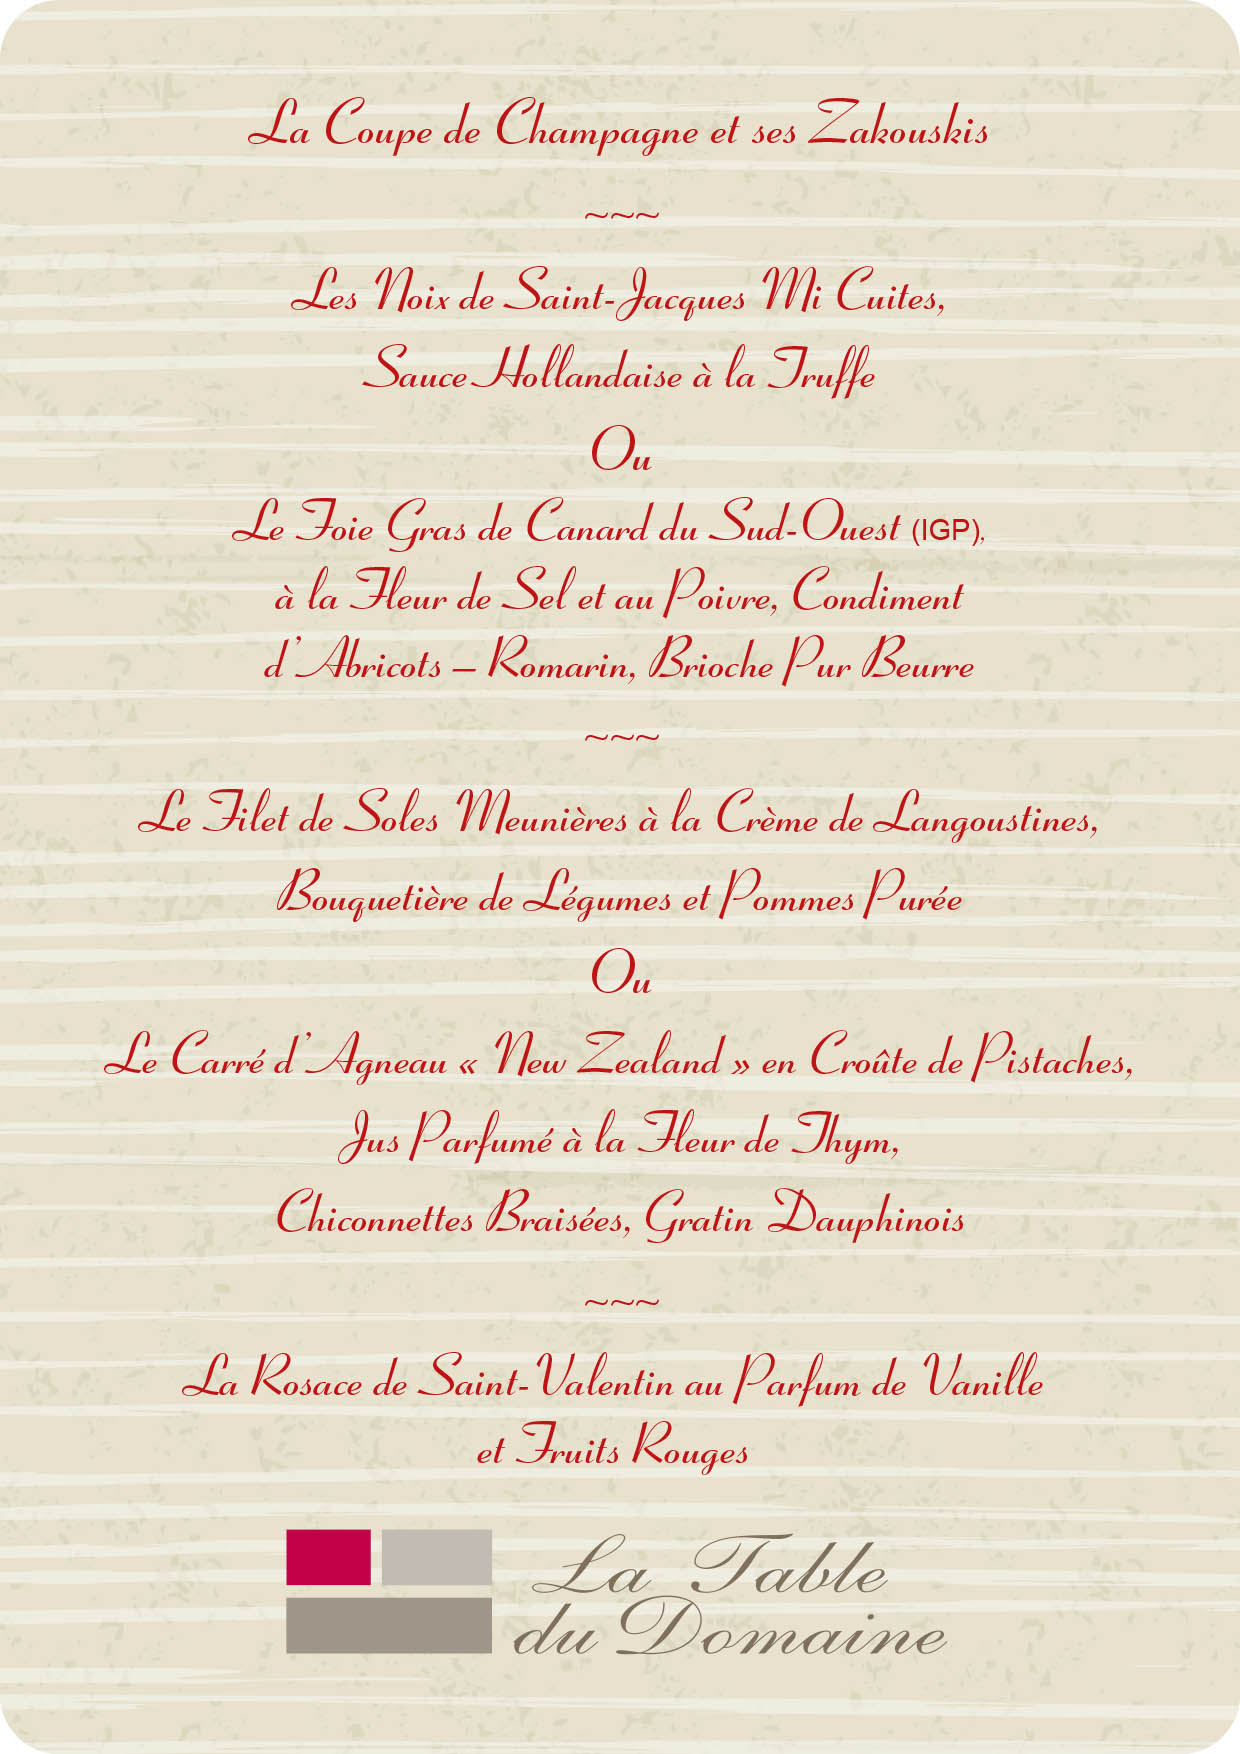 La Coupe de Champagne et ses Zakouskis
~~~
Les Noix de Saint-Jacques Mi Cuites,
Sauce Hollandaise à la Truffe
Ou
Le Foie Gras de Canard du Sud-Ouest (IGP),
à la Fleur de Sel et au Poivre, Condiment
d'Abricots – Romarin, Brioche Pur Beurre
~~~
Le Filet de Soles Meunières à la Crème de Langoustines,
Bouquetière de Légumes et Pommes Purée
Ou
Le Carré d'Agneau « New Zealand » en Croûte de Pistaches,
Jus Parfumé à la Fleur de Thym,
Chiconnettes Braisées, Gratin Dauphinois
~~~
La Rosace de Saint-Valentin au Parfum de Vanille
et Fruits Rouges
La Table
du Domaine